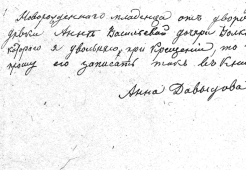 Новорожденного младенца отъ дворо
Аннѣ Васильевой дочери
котораго я при Крещеніи, то
прошу его записать такъ въ Кни
Анна Давыдова